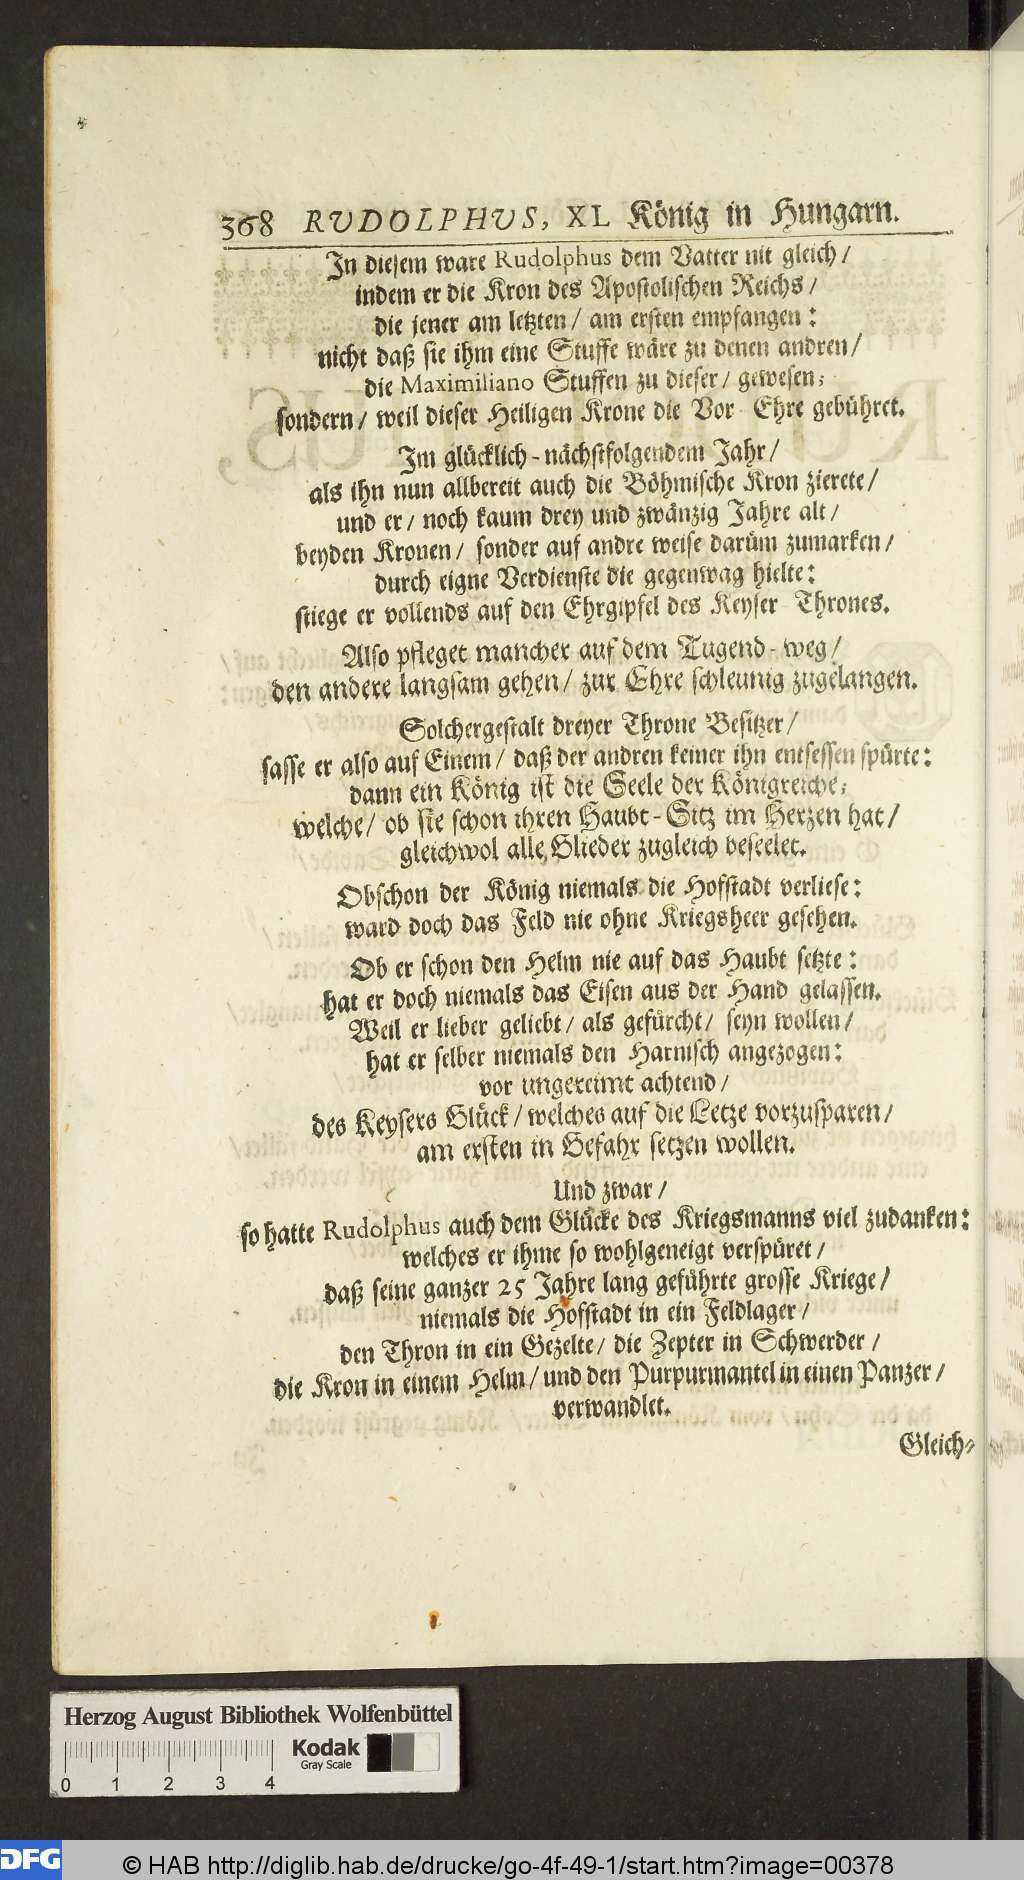 368 RVDOLPHVS, XL König in Hungarn.
In diesem ware Rudolphus dem Vatter nit gleich /
indem er die Kron des Apostolischen Reichs /
die jener am letzten / am ersten empfangen:
nicht daß sie ihm eine Stuffe wäre zu denen andren /
die Maximiliano Stuffen zu dieser / gewesen;
sondern / weil dieser Heiligen Krone die Vor-Ehre gebühret.
Im glücklich-nächstfolgendem Jahr /
als ihn nun allbereit auch die Böhmische Kron zierete /
und er / noch kaum drey und zwänzig Jahre alt /
beyden Kronen / sonder auf andre weise darüm zumarken /
durch eigne Verdienste die gegenwag hielte:
stiege er vollends auf den Ehrgipfel des Keyser-Thrones.
Also pfleget mancher auf dem Tugend-weg /
den andere langsam gehen / zur Ehre schleunig zugelangen.
Solchergestalt dreyer Throne Besitzer /
sasse er also auf Einem / daß der andren keiner ihn entsessen spürte:
dann ein König ist die Seele der Königreiche;
welche / ob sie schon ihren Haubt-Sitz im Herzen hat /
gleichwol alle Glieder zugleich beseelet.
Obschon der König niemals die Hofstadt verliese:
ward doch das Feld nie ohne Kriegsheer gesehen.
Ob er schon den Helm nie auf das Haubt setzte:
hat er doch niemals das Eisen aus der Hand gelassen.
Weil er lieber geliebt / als gefürcht / seyn wollen /
hat er selber niemals den Harnisch angezogen:
vor ungereimt achtend /
des Keysers Glück / welches auf die Letze vorzusparen /
am ersten in Gefahr setzen wollen.
Und zwar /
so hatte Rudolphus auch dem Glücke des Kriegsmanns viel zudanken:
welches er ihme so wohlgeneigt verspüret /
daß seine ganzer 25 Jahre lang geführte grosse Kriege /
niemals die Hofstadt in ein Feldlager /
den Thron in ein Gezelte / die Zepter in Schwerder /
die Kron in einem Helm / und den Purpurmantel in einen Panzer /
verwandlet.
Gleich-
Herzog August Bibliothek Wolfenbüttel
Kodak
Gray Scale
0 1 2 3 4
DFG
© HAB http://diglib.hab.de/drucke/go-4f-49-1/start.htm?image=00378